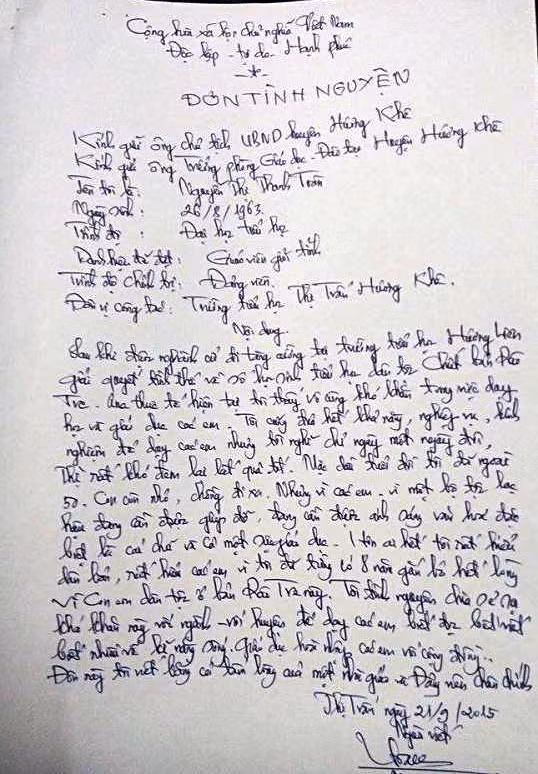 Cộng hòa xã hội chủ nghĩa Việt Nam
Độc lập - tự do - Hạnh phúc
-*-
ĐƠN TÌNH NGUYỆN
Kính gửi ông chủ tịch UBND huyện Hương Khê
Kính gửi ông Trưởng phòng Giáo dục - Đào tạo Huyện Hương Khê
Tên tôi là: Nguyễn Thị Thanh Trần
Ngày sinh: 26/8/1963.
Trình độ: Đại học tiểu học
Danh hiệu đã đạt: Giáo viên giỏi tỉnh
Trình độ chính trị: Đảng viên.
Đơn vị công tác: Trường tiểu học Thị Trấn Hương Khê.
Nội dung.
Sau khi được nghành cử đi tăng cường tại trường tiểu học Hương Liên
giải quyết tình thế về số học sinh tiểu học dân tộc Chứt bản Rào
Tre. Qua thực tế hiện tại tôi thấy vô cùng khó khăn trong việc dạy
học và giáo dục các em. Tôi cũng đã hết khả năng, nghiệp vụ, kinh
nghiệm để dạy các em nhưng tôi nghĩ chỉ ngày một ngày đôi,
thì rất khó đem lại kết quả tốt. Mặc dầu tuổi đời tôi đã ngoài
50. Con còn nhỏ, chồng đi xa. Nhưng vì các em - vì một bộ tộc lạc
hậu đang cần được giúp đỡ, đang cần được ánh sáng văn hoá đặc
biệt là cái chữ và cả một sự giáo dục. Hơn ai hết tôi rất hiểu
dân bản, rất hiểu các em vì tôi đã từng có 8 năm gắn bó hết lòng
vì con em dân tộc ở bản Rào Tre này. Tôi tình nguyện chia sẻ sự
khó khăn này với ngành - với huyện để dạy các em biết đọc biết viết
biết nhiều về kĩ năng sống. Giáo dục hoà nhập các em với cộng đồng..
Đơn này tôi viết bằng cả tấm lòng của một nhà giáo và Đảng viên chân chính
Thị Trấn ngày 21/9/2015
Người viết